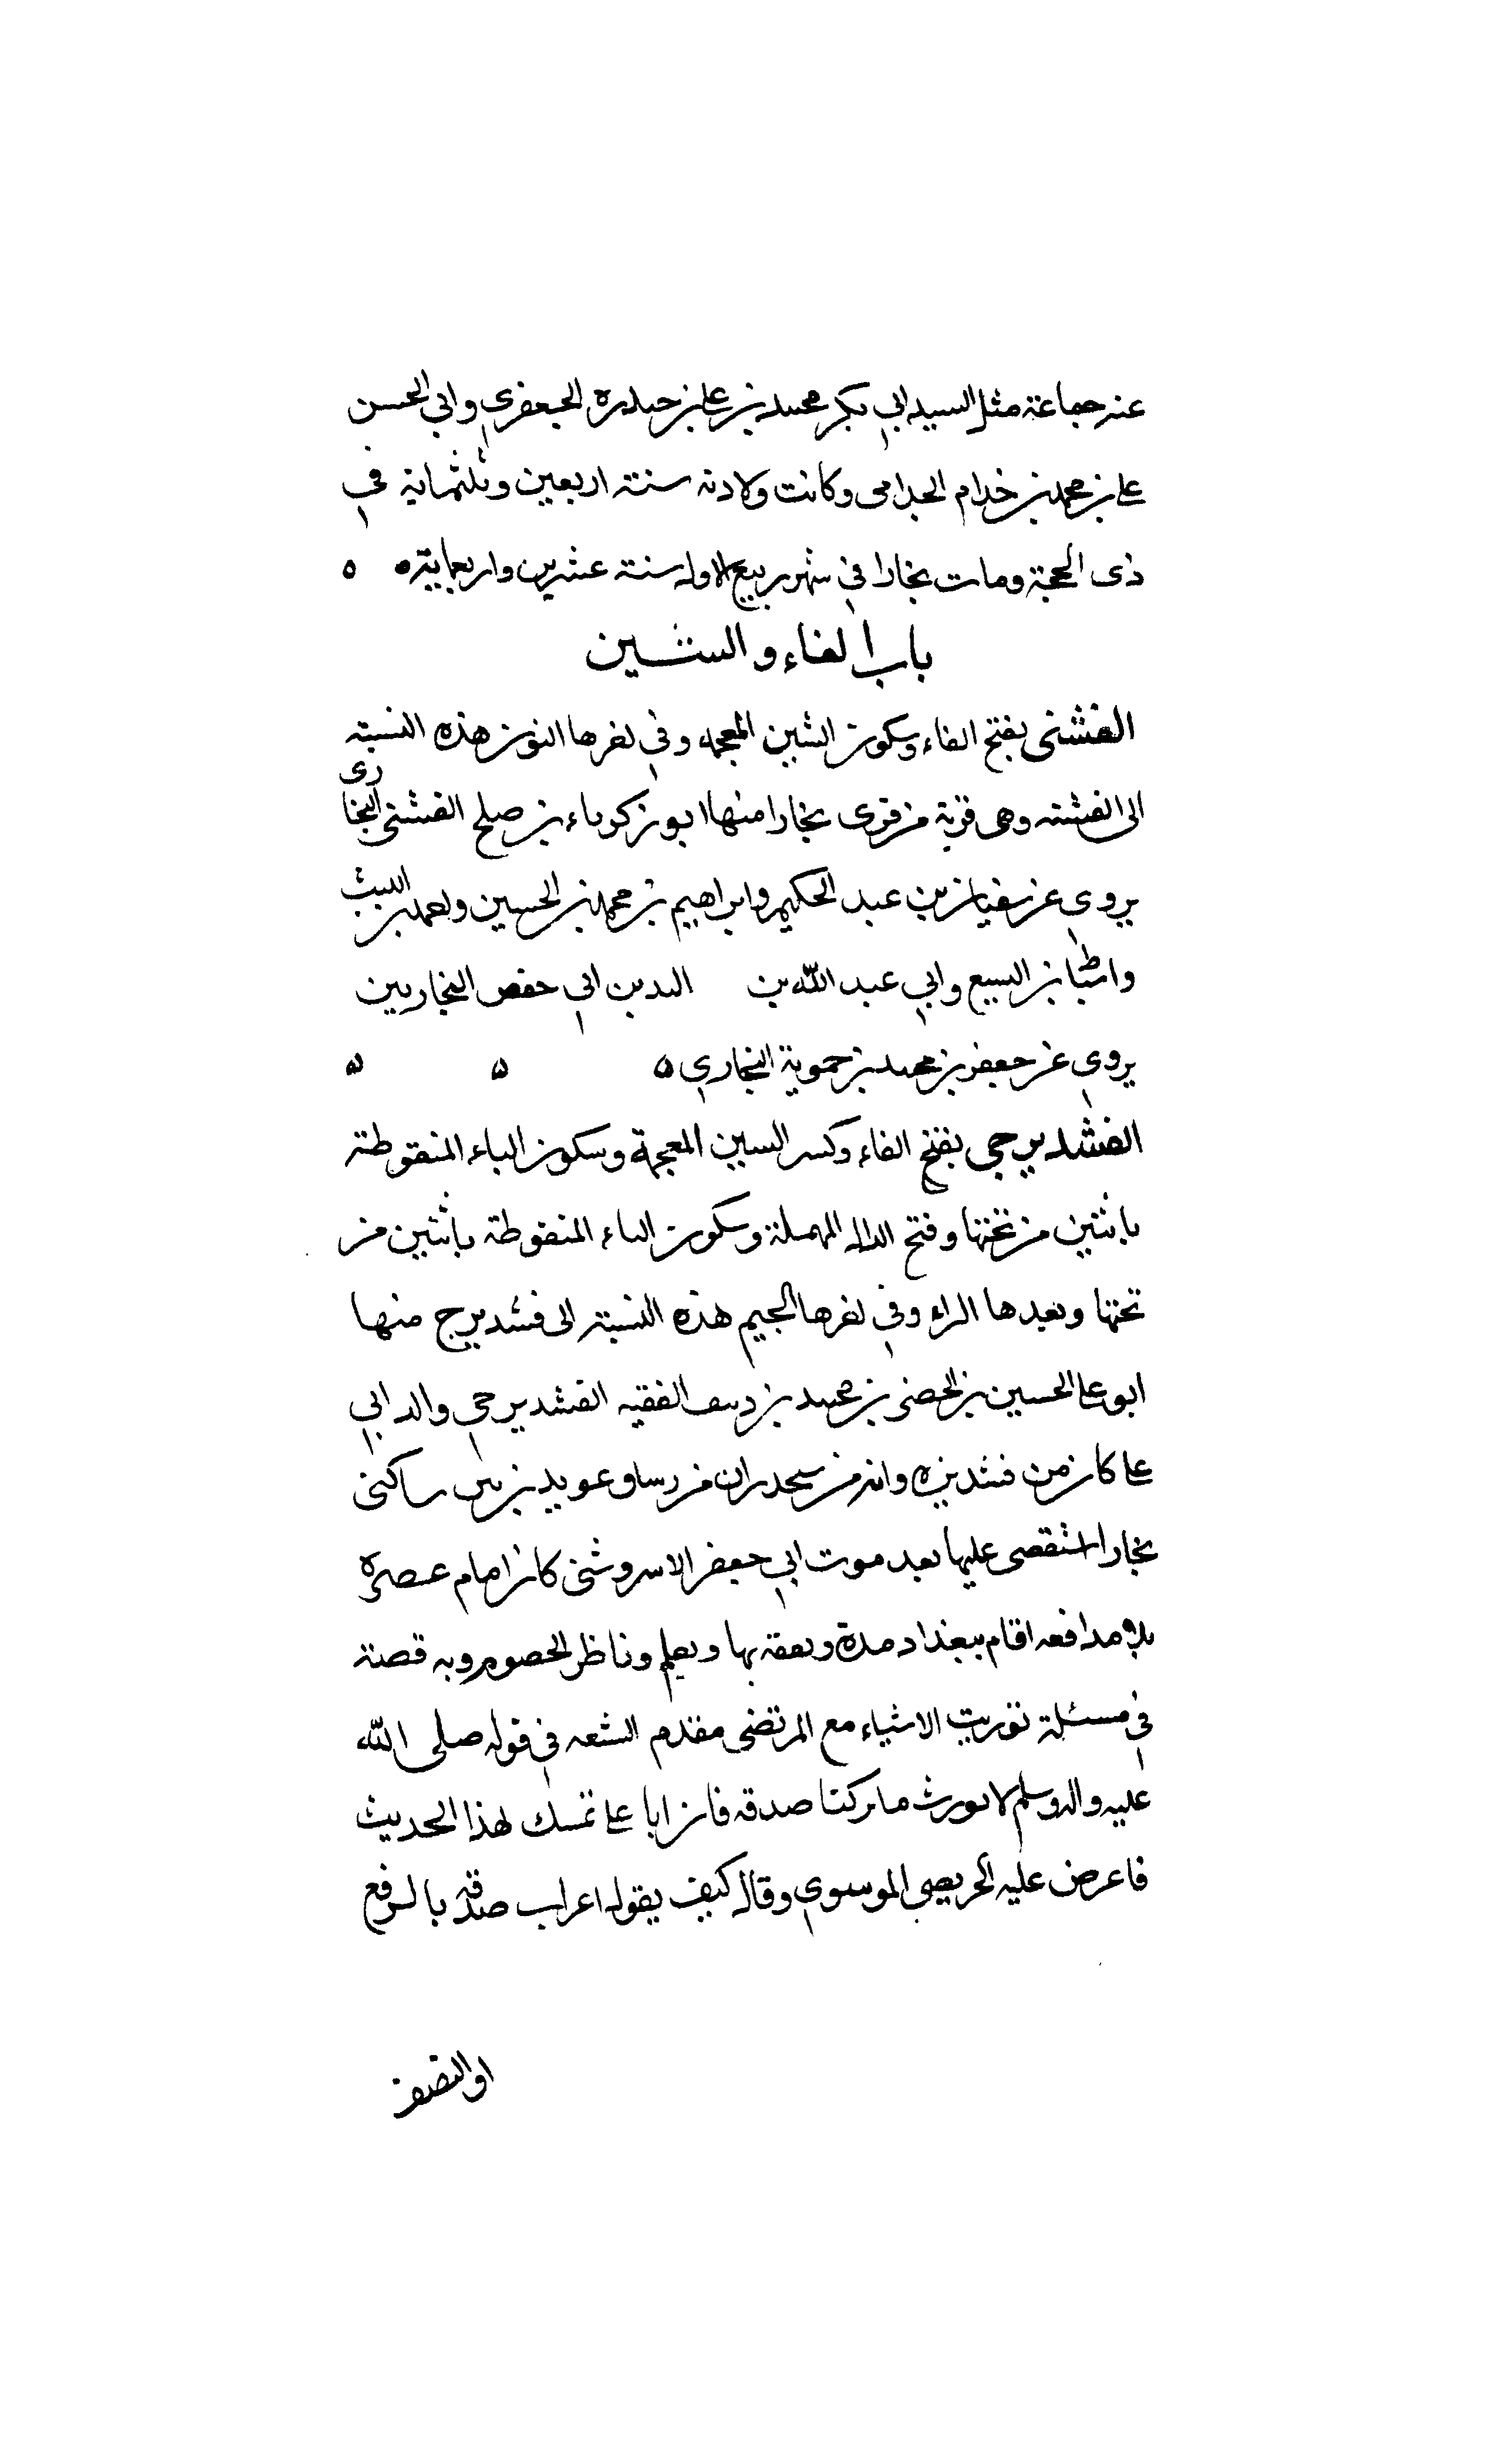 عنه جماعة مثل السيد ابي بكر محمد بن علي بن حيدرة الجعفري وابي الحسن
علي بن محمد بن خدام الخدامي وكانت ولادته سنة اربعين وثلثمائة في
ذي الحجة ومات بخارا في شهر ربيع الاول سنة عشرين واربعمايته ٥
باب الفاء والشين
الفشنى بفتح الفاء وسكون الشين المعجمه وفي اخرها النون هذه النسبة
الى الفشنه وهى قرية من قرى بخارا منها ابو زكرياء بن صلح الفشنى البخارى
يروي عن سفيان بن عبد الحكيم وابراهيم بن محمد بن الحسين ومحمد بن الليث
واسباط بن اليسع وابي عبد الله بن ابي حفص البخاريين
يروي عن جعفر بن محمد بن حموية البخاري ٥ ٥ ٥
الفشديرجى بفتح الفاء وكسر الشين المعجمة وسكون الياء المنقوطة
باثنين من تحتها وفتح الدال المهملة وسكون الياء المنقوطة باثنين من
تحتها وبعدها الراء وفي اخرها الجيم هذه النسبة الى فشديرج منها
ابو علي الحسين بن الخضر بن محمد بن دنيف الفقيه الفشديرجي والد ابي
علي كان من فشديزه وامه من من
بخارا استقضى عليها بعد موت ابي جعفر الاسروشنى كان امام عصره
بلا مدافعه اقام ببغداد مدة وتفقه بها وتعلم وناظر الخصوم وبه قصة
في مسئلة توريث الانبياء مع المرتضى مقدم الشيعه في قوله صلى الله
عليه واله وسلم لا نورث ما تركنا صدقه فان ابا علي تمسك لهذا الحديث
فاعرض عليه الموسوي وقال كيف يقول اعراب صدقة بالرفع
او النصف